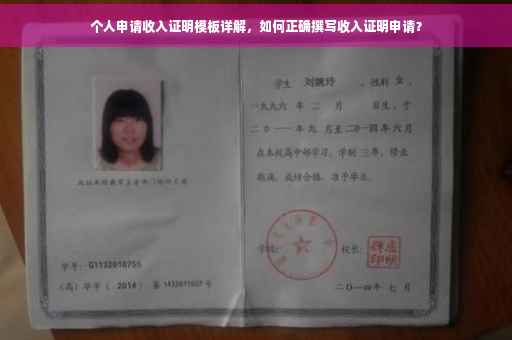 个人申请收入证明模板详解，如何正确撰写收入证明申请？
学生 刘婉玲 ，性别 女 ，
一九九六 年 二 月 日生，于
二〇一一年九 月至二〇一四年六月
在本校高中部学习，学制 三年，修业
期满，成绩合格，准予毕业。
学校：
校长：
学号：G1132010755
（高）毕字（ 2014 ）第 1432011027 号
二〇一四年 七 月